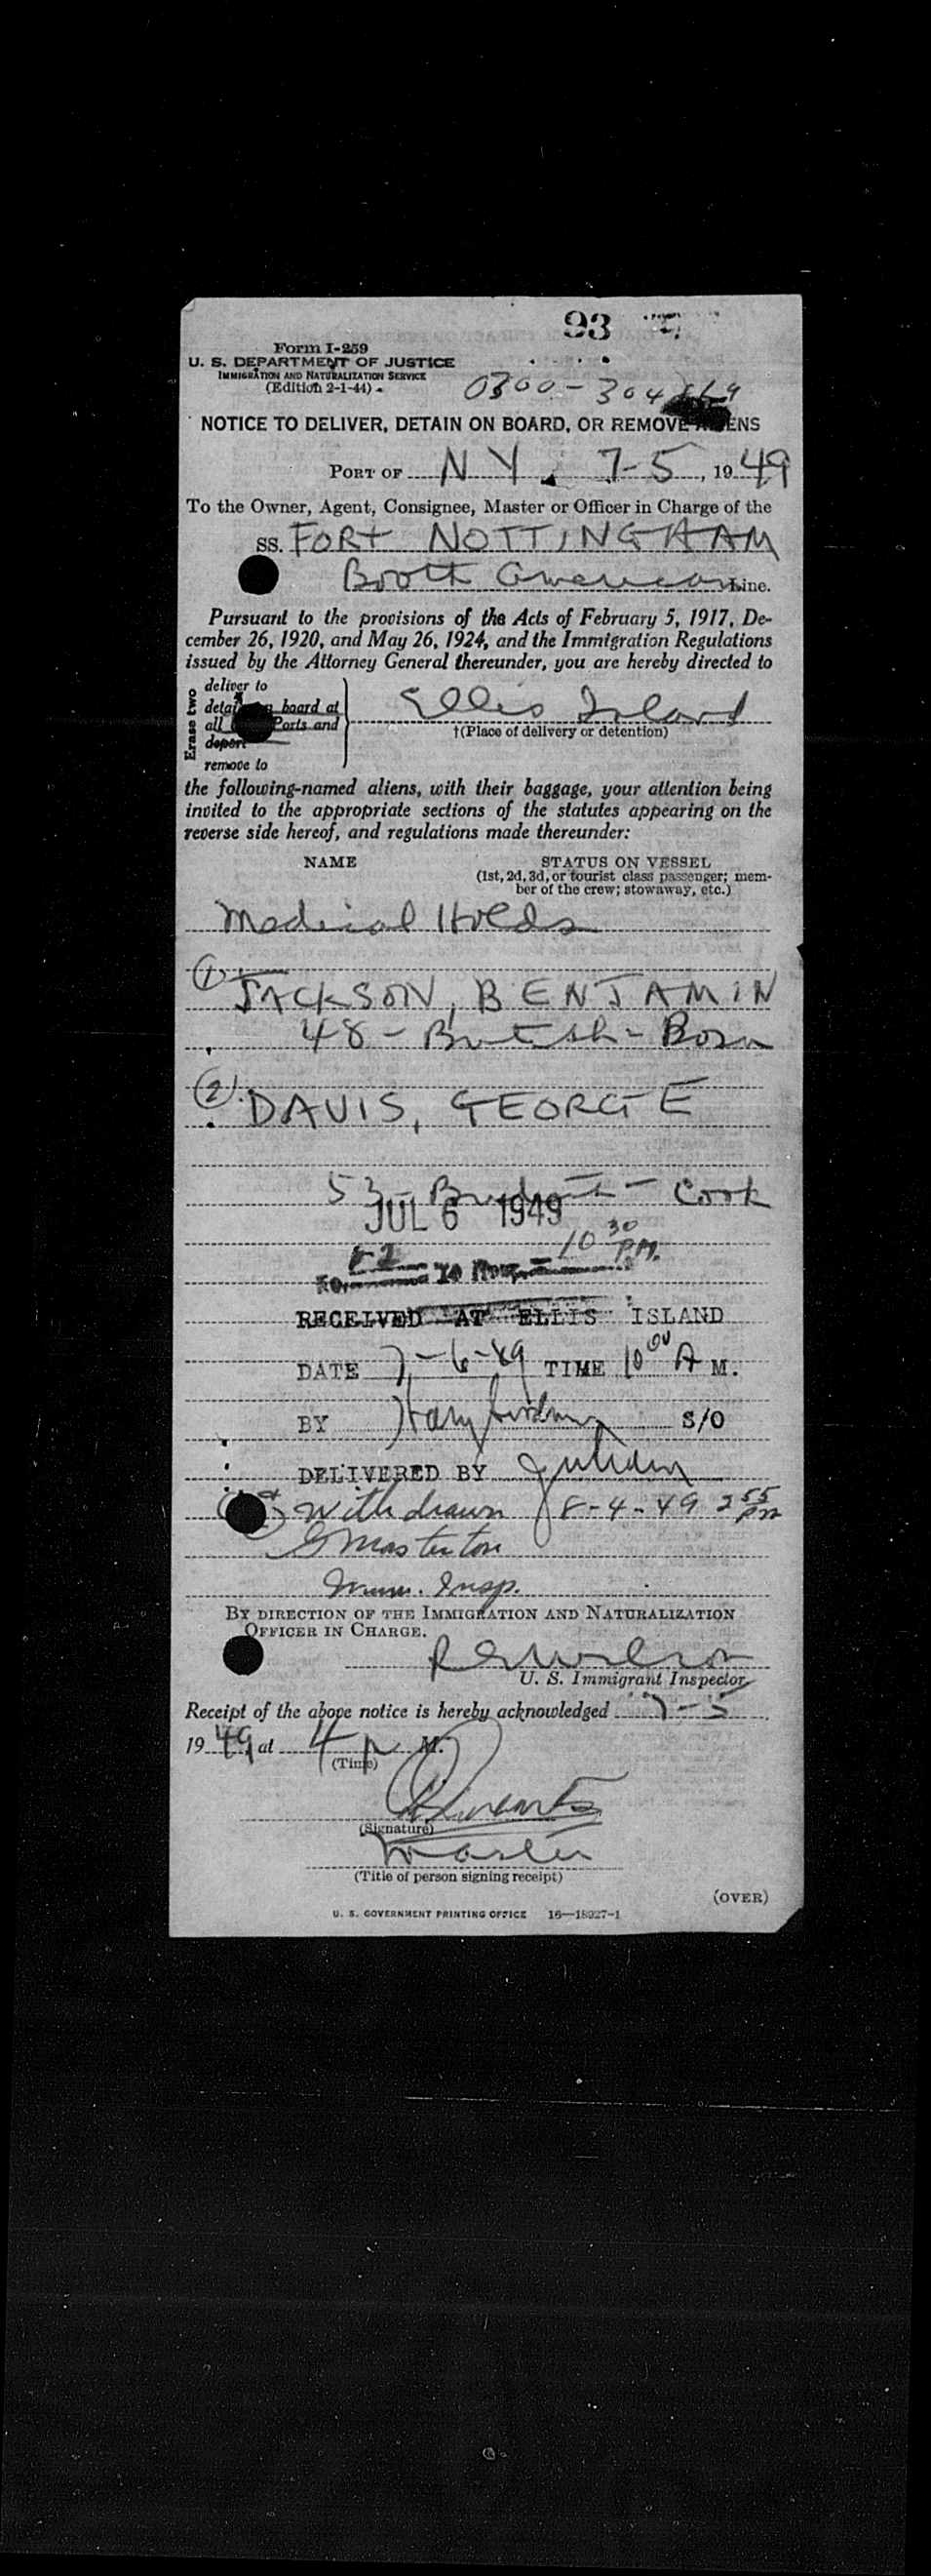 93
Form I-259
U. S. DEPARTMENT OF JUSTICE
IMMIGRATION AND NATURALIZATION SERVICE
(Edition 2-1-44)
0300-304
NOTICE TO DELIVER, DETAIN ON BOARD, OR REMOVE ALIENS
PORT OF N Y. 7-5, 1949
To the Owner, Agent, Consignee, Master or Officer in Charge of the
SS. FORT NOTTINGHAM
Booth American Line.
Pursuant to the provisions of the Acts of February 5, 1917, De-
cember 26, 1920, and May 26, 1924, and the Immigration Regulations
issued by the Attorney General thereunder, you are hereby directed to
Erase two
deliver to
detain on board at
all Ports and
deport
remove to
Ellis Island
†(Place of delivery or detention)
the following-named aliens, with their baggage, your attention being
invited to the appropriate sections of the statutes appearing on the
reverse side hereof, and regulations made thereunder:
NAME STATUS ON VESSEL
(1st, 2d, 3d, or tourist class passenger; mem-
ber of the crew; stowaway, etc.)
Medical Holds
(1) JACKSON, BENJAMIN
48 - British - Bosn
(2) DAVIS, GEORGE
53 - British - Cook
JUL 6 1949
10 30 P.M.
RECEIVED AT ELLIS ISLAND
DATE 7-6-49 TIME 10 00 A M.
BY Harry S/O
DELIVERED BY
withdrawn 8-4-49 2 55 pm
G Masterton
Imm. Insp.
BY DIRECTION OF THE IMMIGRATION AND NATURALIZATION
OFFICER IN CHARGE.
U. S. Immigrant Inspector
Receipt of the above notice is hereby acknowledged 7-5,
1949, at 4 p M.
(Time)
(Signature)
Master
(Title of person signing receipt)
(OVER)
U. S. GOVERNMENT PRINTING OFFICE 16—18927-1